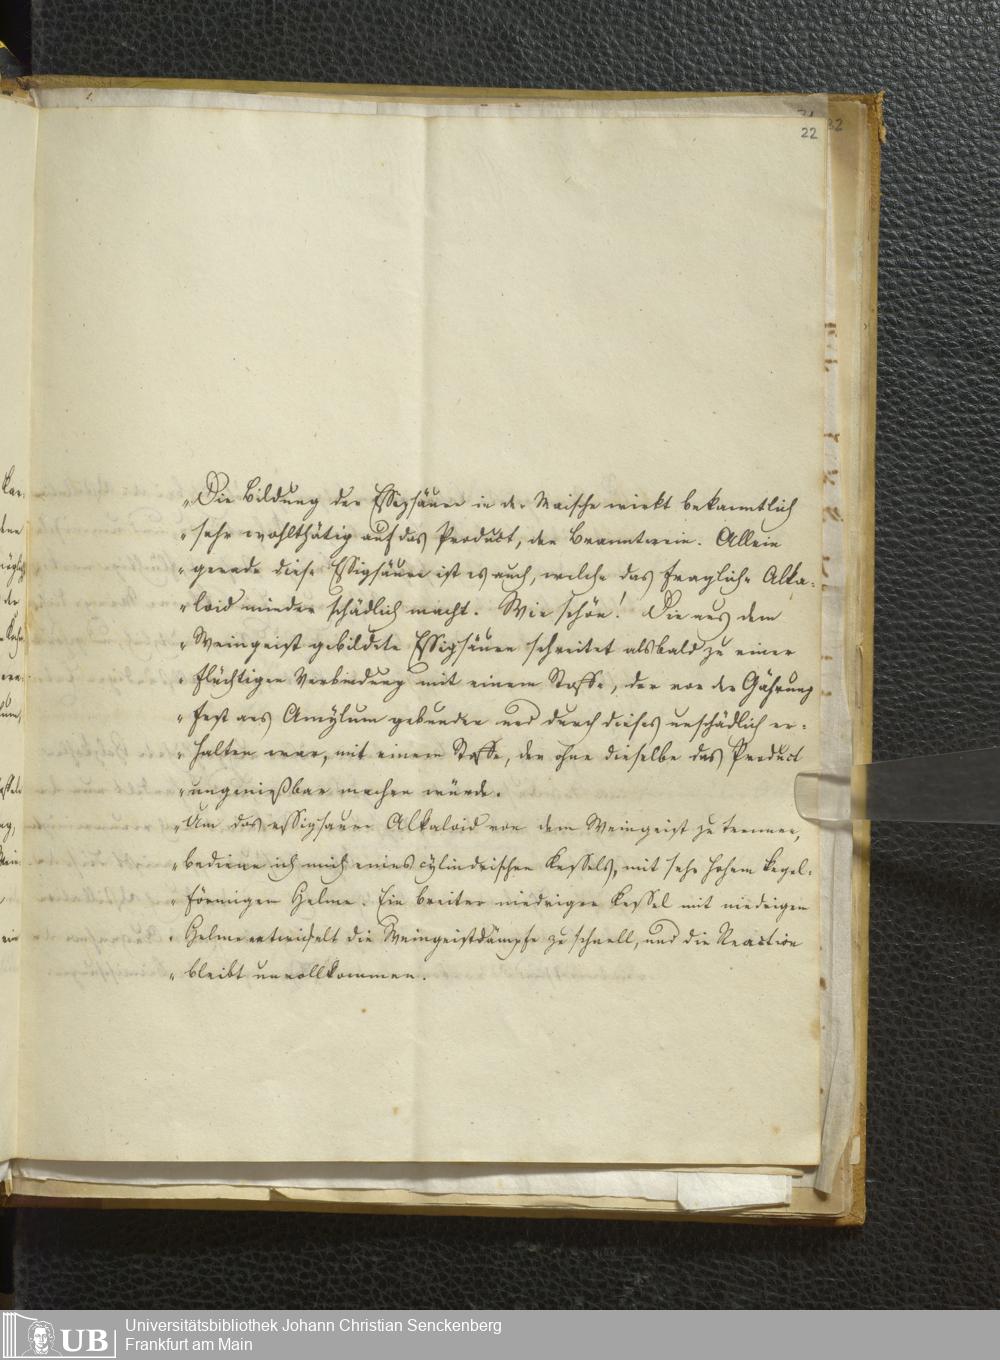 22
32
„Die Bildung der Essigsäure in der Maische wirkt bekanntlich
„sehr wohlthätig auf das Product, den Branntwein. Allein
„gerade diese Essigsäure ist es auch, welche das fragliche Alka-
„loid minder schädlich macht. Wie schön! Die aus dem
„Weingeist gebildete Essigsäure schreitet alsbald zu einer
„flüchtigen Verbindung mit einem Stoffe, der vor der Gährung
„fest ans Amÿlum gebunden und durch dieses unschädlich er-
„halten war, mit einem Stoffe, der ohne dieselbe das Product
„ungenießbar machen würde.
„Um das essigsaure Alkaloid von dem Weingeist zu trennen,
„bediene ich mich eines cÿlindrischen Kessels, mit sehr hohem kegel-
„förmigen Helme. Ein breiter niedriger Kessel mit niedrigem
„Helme entwickelt die Weingeistdämpfe zu schnell, und die Reaction
„bleibt unvollkommen.
UB
Universitätsbibliothek Johann Christian Senckenberg
Frankfurt am Main